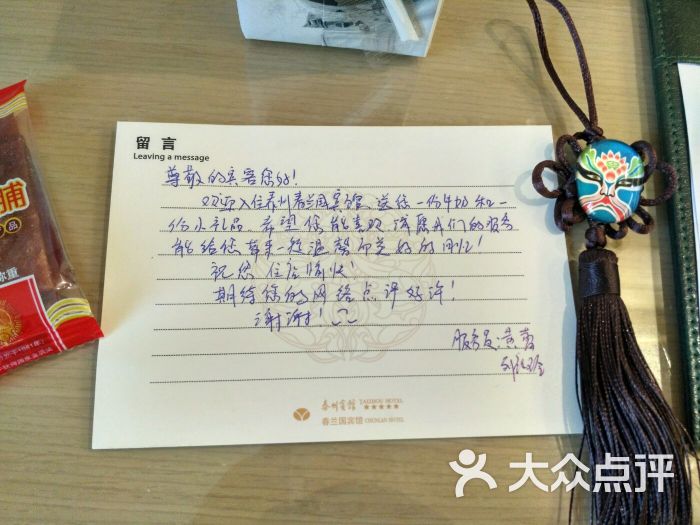 留言
Leaving a message
尊敬的宾客您好!
欢迎入住泰州春兰国宾馆,送您一份牛奶和一
份小礼品,希望您能喜欢,谨愿我们的服务
能给您带来一段温馨而美好的回忆!
祝您住店愉快!
期待您的网络点评好评!
谢谢!
服务员:黄
泰州宾馆 TAIZHOU HOTEL
★★★★★
春兰国宾馆 CHUNLAN HOTEL
脯
称重
大众点评